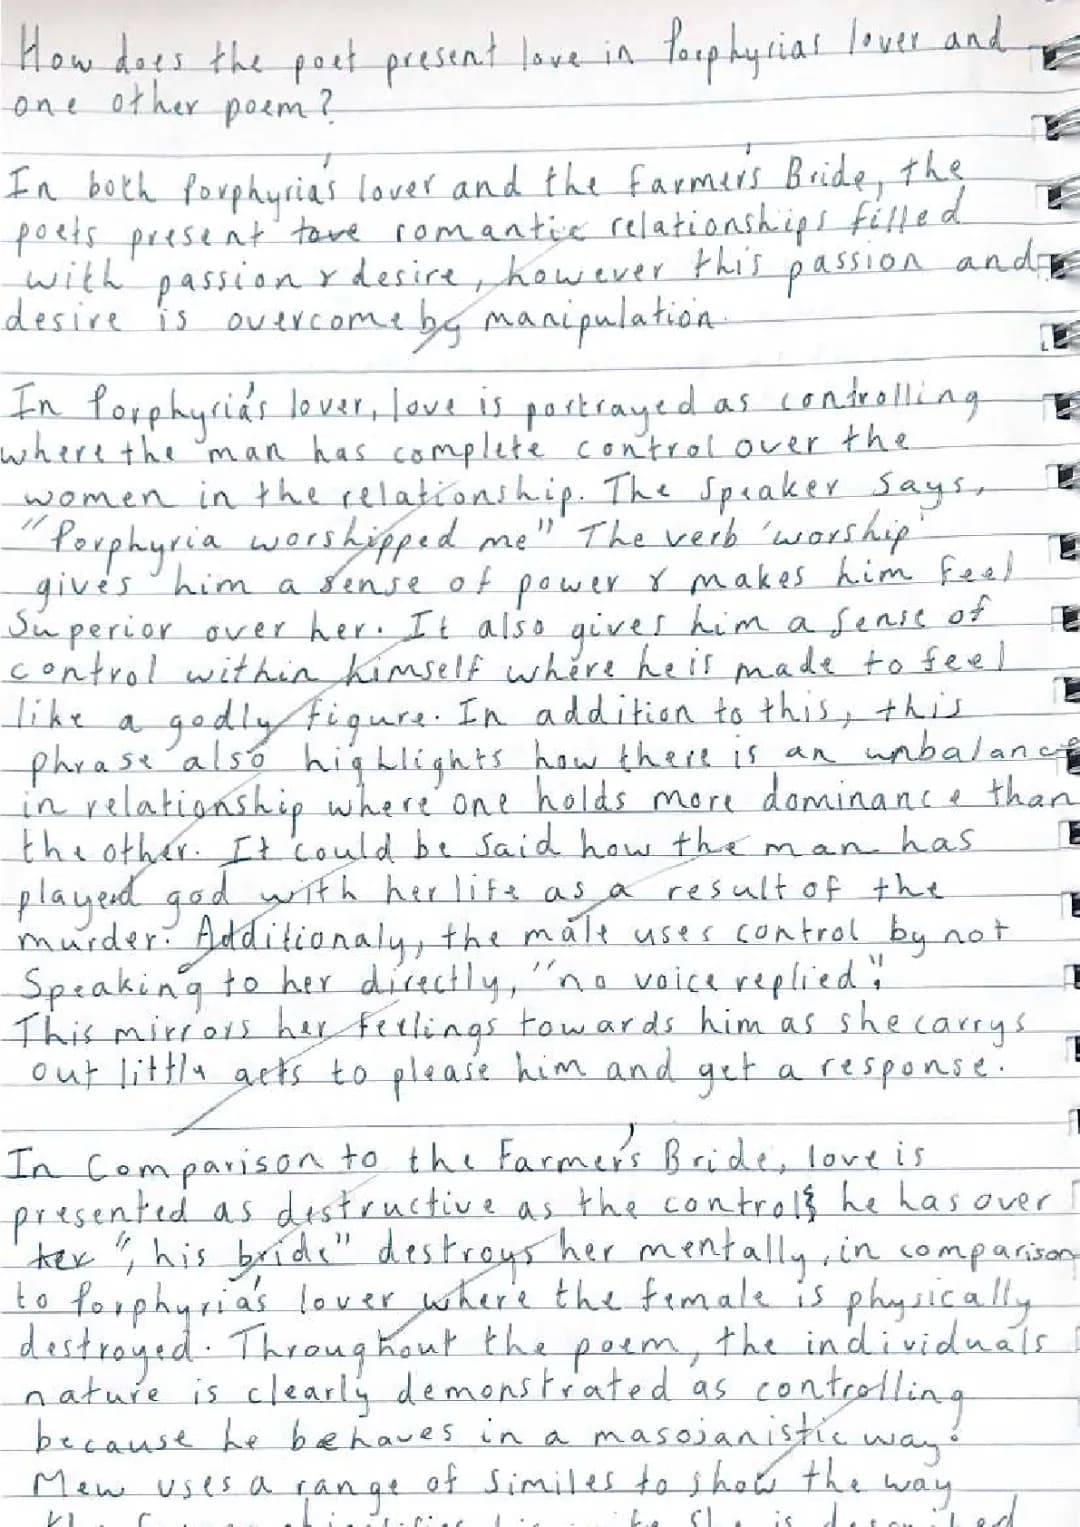 How does the poet present love in Porphyrias lover and
one other poem?
In both Porphyria's lover and the Farmer's Bride, the
poets present love romantic relationships filled
with passion & desire, however this passion and
desire is overcome by manipulation.
In Porphyria's lover, love is portrayed as controlling
where the man has complete control over the
women in the relationship. The speaker says,
"Porphyria worshipped me" The verb 'worship'
gives him a sense of power & makes him feel
Superior over her. It also gives him a sense of
control within himself where he is made to feel
like a godly figure. In addition to this, this
phrase also highlights how there is an unbalance
in relationship where one holds more dominance than
the other. It could be said how the man has
played god with her life as a result of the
murder. Additionaly, the male uses control by not
Speaking to her directly, "no voice replied".
This mirrors her feelings towards him as she carrys
out little acts to please him and get a response.
In Comparison to the Farmer's Bride, love is
presented as destructive as the control he has over
her ", his bride" destroys her mentally, in comparison
to Porphyria's lover where the female is physically
destroyed. Throughout the poem, the individuals
nature is clearly demonstrated as controlling
because he behaves in a masojanistic way.
Mew uses a range of similes to show the way